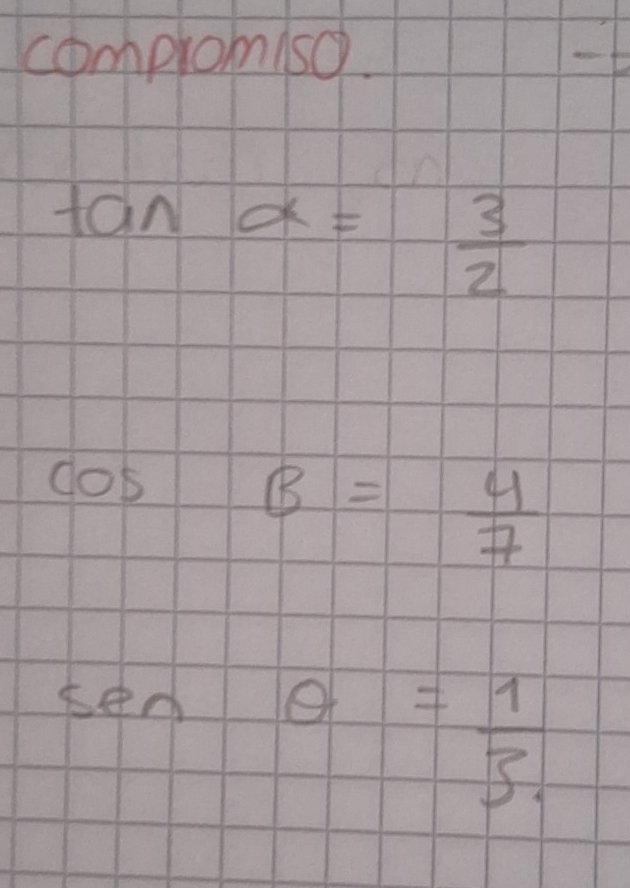 compromiso.
tan α = 3/2
cos B = 4/7
sen θ = 1/3.